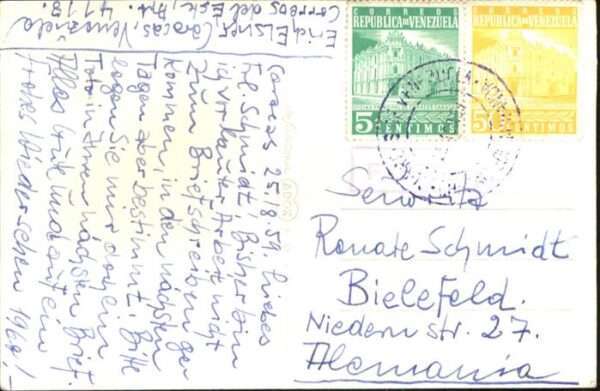 Erich Elsner, Caracas, Venezuela
Correos del Este, 4113.
CORREOS
REPUBLICA DE VENEZUELA
5 CENTIMOS
CORREOS
REPUBLICA DE VENEZUELA
CENTIMOS
Caracas 25.8.59. Liebes
Frl. Schmidt, Bisher bin
ich vor lauter Arbeit nicht
zum Briefschreiben ge
kommen, in den nächsten
Tagen aber bestimmt. Bitte
legen Sie mir doch ein
Foto in Ihren nächsten Brief.
Alles Gute und auf ein
frohes Wiedersehen 1960!
Señorita
Renate Schmidt
Bielefeld.
Niedernstr. 27.
Alemania